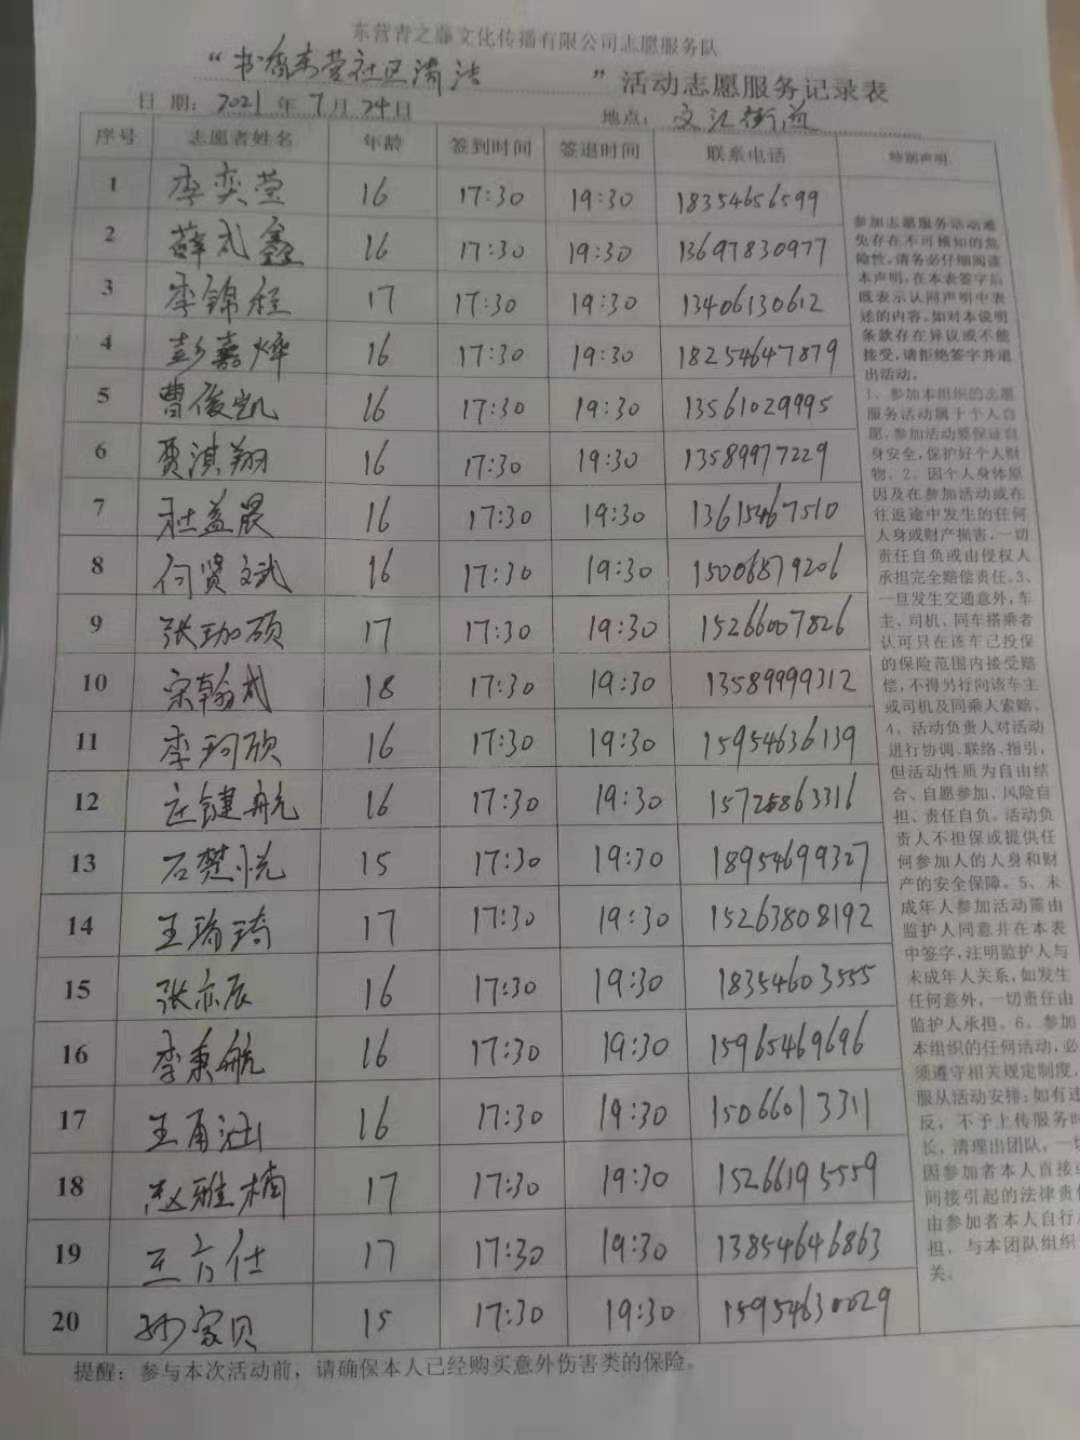 东营青之藤文化传播有限公司志愿服务队
“书香东营社区清洁”活动志愿服务记录表
日期：2021年7月24日 地点：文汇街道
序号 志愿者姓名 年龄 签到时间 签退时间 联系电话 特别声明
1 李奕莹 16 17:30 19:30 18354656599
2 薛武鑫 16 17:30 19:30 13697830977
3 李锦程 17 17:30 19:30 13406130612
4 彭嘉烨 16 17:30 19:30 18254647879
5 曹俊凯 16 17:30 19:30 13561029995
6 贾淇翔 16 17:30 19:30 13589977229
7 杜益晟 16 17:30 19:30 13615467510
8 何贤斌 16 17:30 19:30 15006879206
9 张珈硕 17 17:30 19:30 15266007826
10 宋翰武 18 17:30 19:30 13589999312
11 李珂欣 16 17:30 19:30 15954636139
12 键航 16 17:30 19:30 15725863316
13 石楚悦 15 17:30 19:30 18954699327
14 王瑜琦 17 17:30 19:30 15263808192
15 张亦辰 16 17:30 19:30 18354603555
16 李秉航 16 17:30 19:30 15965469696
17 王甬涵 16 17:30 19:30 15066013311
18 赵雅楠 17 17:30 19:30 15266195559
19 王方仕 17 17:30 19:30 13854646863
20 孙家贝 15 17:30 19:30 15954630029
参加志愿服务活动难
免存在不可预知的危
险性，请务必仔细阅读
本声明，在本表签字后
既表示认同声明中表
述的内容。如对本说明
条款存在异议或不能
接受，请拒绝签字并退
出活动。
1、参加本组织的志愿
服务活动属于个人自
愿，参加活动要保证自
身安全，保护好个人财
物。2、因个人身体原
因及在参加活动或在
往返途中发生的任何
人身或财产损害，一切
责任自负或由侵权人
承担完全赔偿责任。3、
一旦发生交通意外，车
主、司机、同车搭乘者
认可只在该车已投保
的保险范围内接受赔
偿，不得另行向该车主
或司机及同乘人索赔。
4、活动负责人对活动
进行协调、联络、指引，
但活动性质为自由结
合、自愿参加、风险自
担、责任自负。活动负
责人不担保或提供任
何参加人的人身和财
产的安全保障。5、未
成年人参加活动需由
监护人同意并在本表
中签字，注明监护人与
未成年人关系，如发生
任何意外，一切责任由
监护人承担。6、参加
本组织的任何活动，必
须遵守相关规定制度，
服从活动安排；如有违
反，不予上传服务时
长，清理出团队，一切
因参加者本人直接或
间接引起的法律责任
由参加者本人自行
担，与本团队组织
关。
提醒：参与本次活动前，请确保本人已经购买意外伤害类的保险。